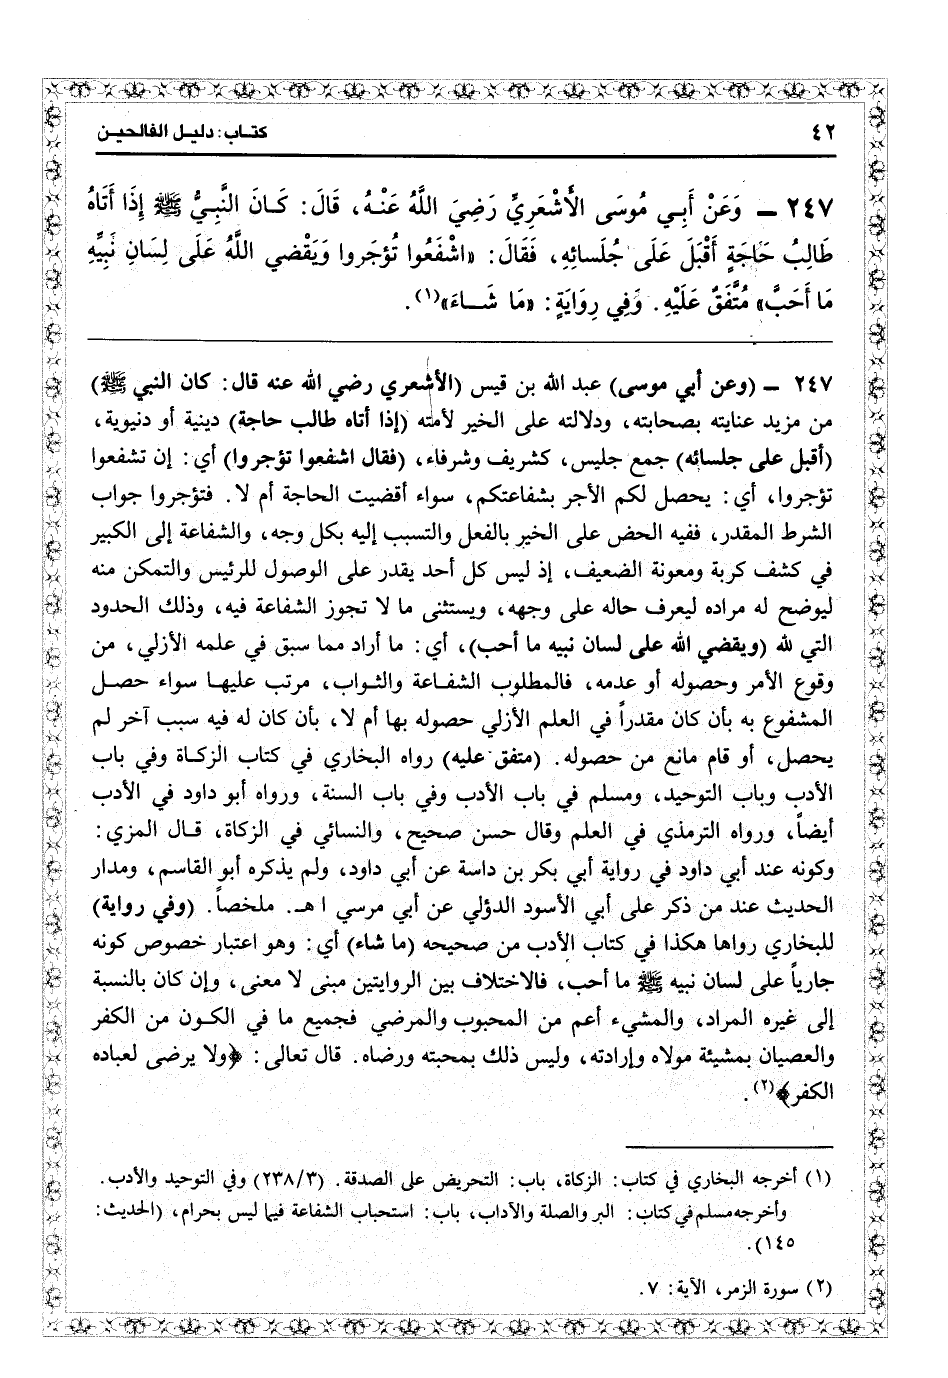 ٤٢ كتاب: دليل الفالحين
٢٤٧ ـ وَعَنْ أَبِي مُوسَى الأَشْعَرِيِّ رَضِيَ اللَّهُ عَنْهُ، قَالَ: كَانَ النَّبِيُّ ﷺ إِذَا أَتَاهُ
طَالِبُ حَاجَةٍ أَقْبَلَ عَلَى جُلَسائِهِ، فَقَالَ: «اشْفَعُوا تُؤجَروا وَيَقْضي اللَّهُ عَلَى لِسَانِ نَبِيِّهِ
مَا أَحَبَّ» مُتَّفَقٌ عَلَيْهِ. وَفِي رِوَايَةٍ: «مَا شَـــاءَ»(١).
٢٤٧ ـ (وعن أبي موسى) عبد الله بن قيس (الأشعري رضي الله عنه قال: كان النبي ﷺ)
من مزيد عنايته بصحابته، ودلالته على الخير لأمته (إذا أتاه طالب حاجة) دينية أو دنيوية،
(أقبل على جلسائه) جمع جليس، كشريف وشرفاء، (فقال اشفعوا تؤجروا) أي: إن تشفعوا
تؤجروا، أي: يحصل لكم الأجر بشفاعتكم، سواء أقضيت الحاجة أم لا. فتؤجروا جواب
الشرط المقدر، ففيه الحض على الخير بالفعل والتسبب إليه بكل وجه، والشفاعة إلى الكبير
في كشف كربة ومعونة الضعيف، إذ ليس كل أحد يقدر على الوصول للرئيس والتمكن منه
ليوضح له مراده ليعرف حاله على وجهه، ويستثنى ما لا تجوز الشفاعة فيه، وذلك الحدود
التي لله (ويقضي الله على لسان نبيه ما أحب)، أي: ما أراد مما سبق في علمه الأزلي، من
وقوع الأمر وحصوله أو عدمه، فالمطلوب الشفاعة والثواب، مرتب عليها سواء حصل
المشفوع به بأن كان مقدراً في العلم الأزلي حصوله بها أم لا، بأن كان له فيه سبب آخر لم
يحصل، أو قام مانع من حصوله. (متفق عليه) رواه البخاري في كتاب الزكاة وفي باب
الأدب وباب التوحيد، ومسلم في باب الأدب وفي باب السنة، ورواه أبو داود في الأدب
أيضاً، ورواه الترمذي في العلم وقال حسن صحيح، والنسائي في الزكاة، قال المزي:
وكونه عند أبي داود في رواية أبي بكر بن داسة عن أبي داود، ولم يذكره أبو القاسم، ومدار
الحديث عند من ذكر على أبي الأسود الدؤلي عن أبي مرسي ا هـ. ملخصاً. (وفي رواية)
للبخاري رواها هكذا في كتاب الأدب من صحيحه (ما شاء) أي: وهو اعتبار خصوص كونه
جارياً على لسان نبيه ﷺ ما أحب، فالاختلاف بين الروايتين مبنى لا معنى، وإن كان بالنسبة
إلى غيره المراد، والمشيء أعم من المحبوب والمرضي فجميع ما في الكون من الكفر
والعصيان بمشيئة مولاه وإرادته، وليس ذلك بمحبته ورضاه. قال تعالى: ﴿ولا يرضى لعباده
الكفر﴾(٢).
(١) أخرجه البخاري في كتاب: الزكاة، باب: التحريض على الصدقة. (٢٣٨/٣) وفي التوحيد والأدب.
وأخرجه مسلم في كتاب: البر والصلة والآداب، باب: استحباب الشفاعة فيما ليس بحرام، (الحديث:
١٤٥).
(٢) سورة الزمر، الآية: ٧.